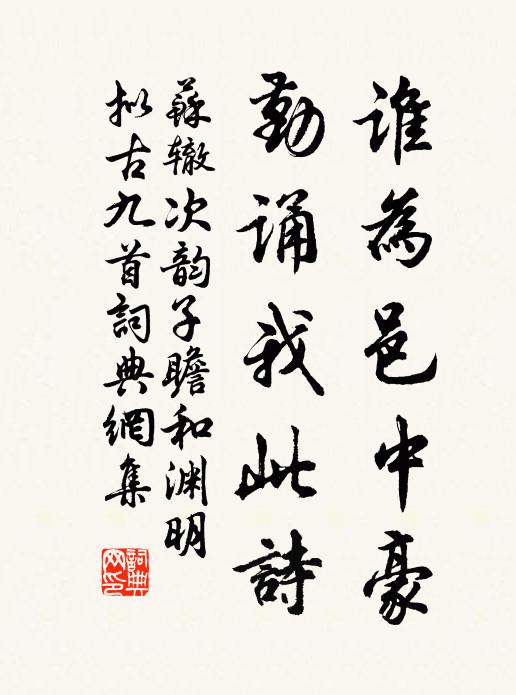 谁為邑中豪
勤诵我此詩
蘇辙次韵子瞻和渊明
拟古九首詞典網集
詞典网印